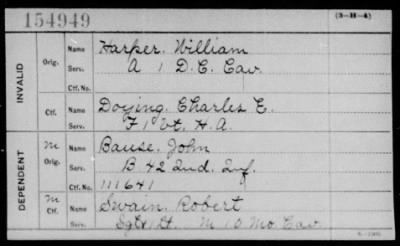 154949
(3-H-4)
INVALID
Orig.
Name Harper, William
Serv. A 1 D.C. Cav.
Ctf. No.
Ctf.
Name Doying, Charles E.
Serv. F 1 Vt. H.A.
DEPENDENT
M
Orig.
Name Bause, John
Serv. B 42 Ind. Inf.
Ctf. No. 111641
M
Ctf.
Name Swain, Robert
Serv. Sgt 1 Lt. M 10 Mo. Cav